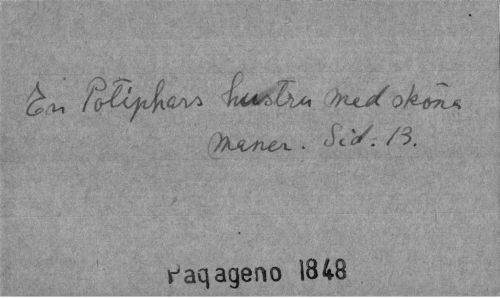 En Potiphars hustru med sköna
maner. Sid. 13.
Papageno 1848